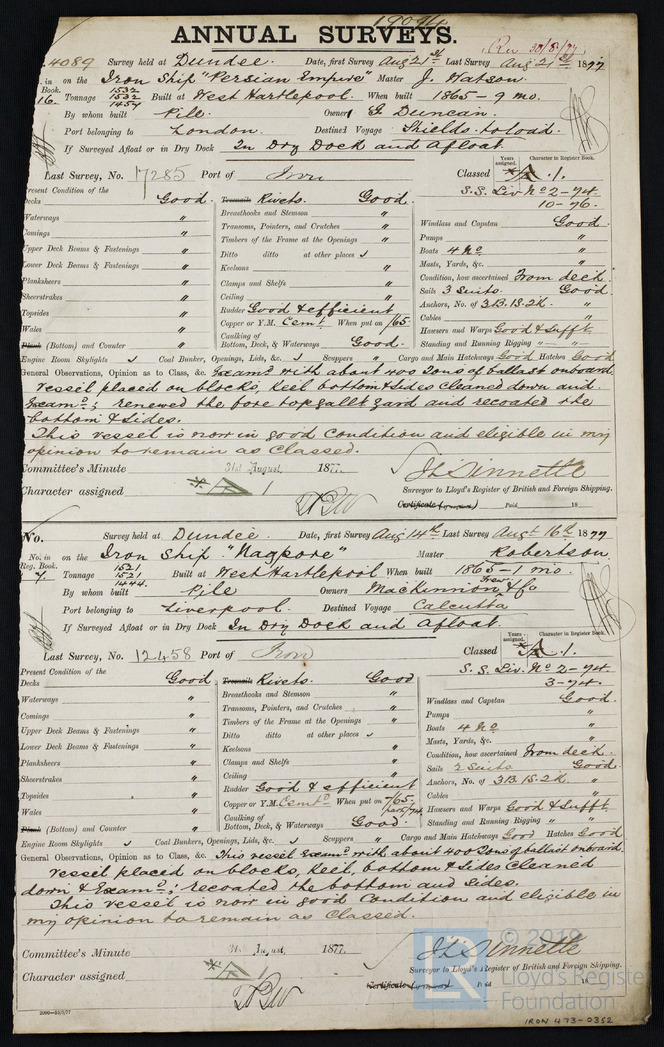 19094
ANNUAL SURVEYS.
Rec 30/8/77
4089 Survey held at Dundee. Date, first Survey Aug 21st Last Survey Aug 21st 1877
in on the Iron Ship "Persian Empire" Master J. Watson.
Book. 1532
16. Tonnage 1532 Built at West Hartlepool. When built 1865 - 9 mo.
1454
By whom built Pile. Owner G. Duncan.
Port belonging to London. Destined Voyage Shields to load.
If Surveyed Afloat or in Dry Dock In Dry Dock and Afloat.
Last Survey, No. 17285 Port of Iron Classed A.1.
Years assigned. Character in Register Book.
S.S. Liv No 2-74
10-76.
Present Condition of the
Decks Good. Treenails Rivets. Good.
Waterways " Breasthooks and Stemson "
Comings " Transoms, Pointers, and Crutches "
Upper Deck Beams & Fastenings " Timbers of the Frame at the Openings "
Lower Deck Beams & Fastenings " Ditto ditto at other places ✓
Planksheers " Keelsons "
Sheerstrakes " Clamps and Shelfs "
Topsides " Ceiling "
Wales " Rudder Good & efficient
Plank (Bottom) and Counter " Copper or Y.M. Cemt. When put on /65.
Caulking of Bottom, Deck, & Waterways Good.
Windlass and Capstan Good.
Pumps "
Boats 4 No "
Masts, Yards, &c. "
Condition, how ascertained From deck.
Sails 3 Suits. Good.
Anchors, No. of 3B.1S.2K. "
Cables "
Hawsers and Warps Good & Sufft.
Standing and Running Rigging " "
Engine Room Skylights ✓ Coal Bunker, Openings, Lids, &c. ✓ Scuppers " Cargo and Main Hatchways Good Hatches Good
General Observations, Opinion as to Class, &c. Examd. with about 400 Tons of ballast onboard
Vessel placed on blocks, Keel bottom & sides cleaned down and
Examd.; renewed the fore topgallt yard and recoated the
bottom & sides.
This vessel is now in good condition and eligible in my
opinion to remain as Classed.
Committee's Minute 31st August, 1877. J L Sinnette
Character assigned A 1 Surveyor to Lloyd's Register of British and Foreign Shipping.
Certificate Paid 18
No. Survey held at Dundee. Date, first Survey Aug 14th Last Survey Augt 16th 1877
No. in on the Iron Ship. "Nagpore" Master Robertson
Reg. Book. 1521
Tonnage 1521 Built at West Hartlepool When built 1865 - 1 mo.
1444.
By whom built Pile Owners MacKinnon Frew & Co
Port belonging to Liverpool. Destined Voyage Calcutta
If Surveyed Afloat or in Dry Dock In Dry Dock and Afloat.
Last Survey, No. 12458 Port of Iron Classed A.1.
Years assigned. Character in Register Book.
S.S. Liv. No 2-74
3-74.
Present Condition of the
Decks Good Treenails Rivets. Good
Waterways " Breasthooks and Stemson "
Comings " Transoms, Pointers, and Crutches "
Upper Deck Beams & Fastenings " Timbers of the Frame at the Openings "
Lower Deck Beams & Fastenings " Ditto ditto at other places ✓
Planksheers " Keelsons "
Sheerstrakes " Clamps and Shelfs "
Topsides " Ceiling "
Wales " Rudder Good & efficient
Plank (Bottom) and Counter " Copper or Y.M. Cemtd When put on 7/65.
Caulking of Bottom, Deck, & Waterways Good.
Windlass and Capstan Good.
Pumps "
Boats 4 No "
Masts, Yards, &c. "
Condition, how ascertained From deck.
Sails 2 Suits Good.
Anchors, No. of 3B.1S.2K. "
Cables "
Hawsers and Warps Good & Sufft.
Standing and Running Rigging " "
Engine Room Skylights ✓ Coal Bunkers, Openings, Lids, &c. ✓ Scuppers " Cargo and Main Hatchways Good Hatches Good
General Observations, Opinion as to Class, &c. This vessel Examd. with about 400 Tons of ballast onboard
Vessel placed on blocks, Keel, bottom & Sides Cleaned
down & Examd.; recoated the bottom and sides.
This vessel is now in good Condition and eligible in
my opinion to remain as Classed.
Committee's Minute 31st August, 1877. J L Sinnette
Character assigned A 1 Surveyor to Lloyd's Register of British and Foreign Shipping.
Certificate Paid 18
2000—23/2/77
© 2019
LR Lloyd's Register
Foundation
IRON 473-0352